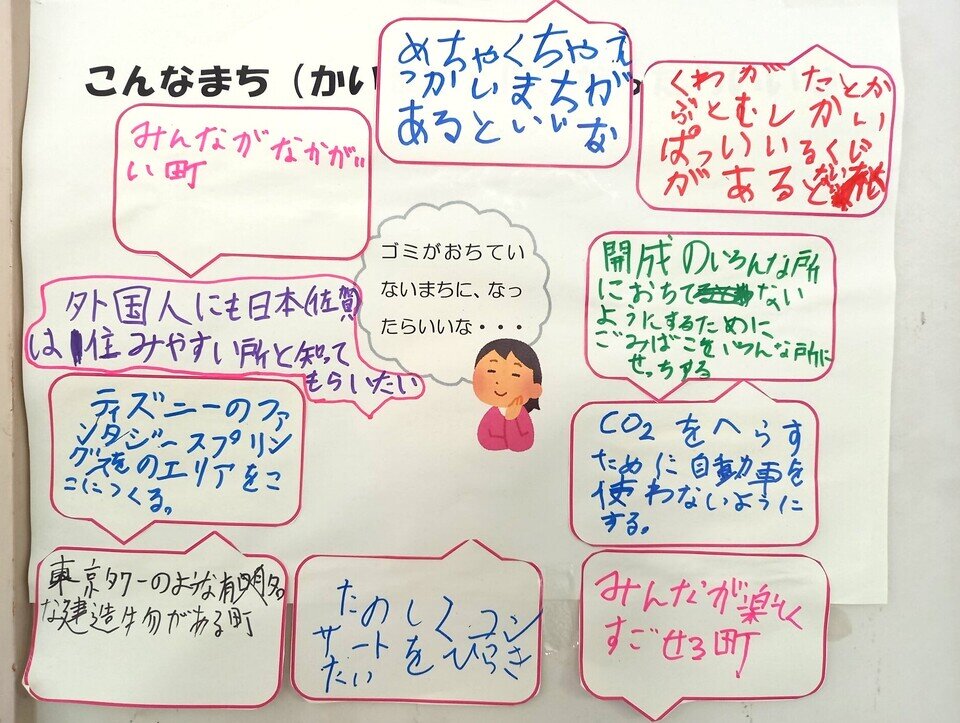 こんなまち（かい
めちゃくちゃえ
っかいまちが
あるといいな
くわがたとか
ぶとむしかい
ぱっいいるくに
があるど
みんながなかがい
い町
ゴミがおちてい
ないまちに、なっ
たらいいな・・・
開成のいろんな所
におちてないない
ようにするために
ごみばこをいろんな所に
せっちする
外国人にも日本(佐賀)
は住みやすい所と知って
もらいたい
ディズニーのファ
ンタジースプリン
グスをのエリアをこ
こにつくる。
CO2をへらす
ために自動車を
使わないように
する。
東京タワーのような有名
な建造物がある町
たのしくコン
サートをひらき
たい
みんなが楽しく
すごせる町